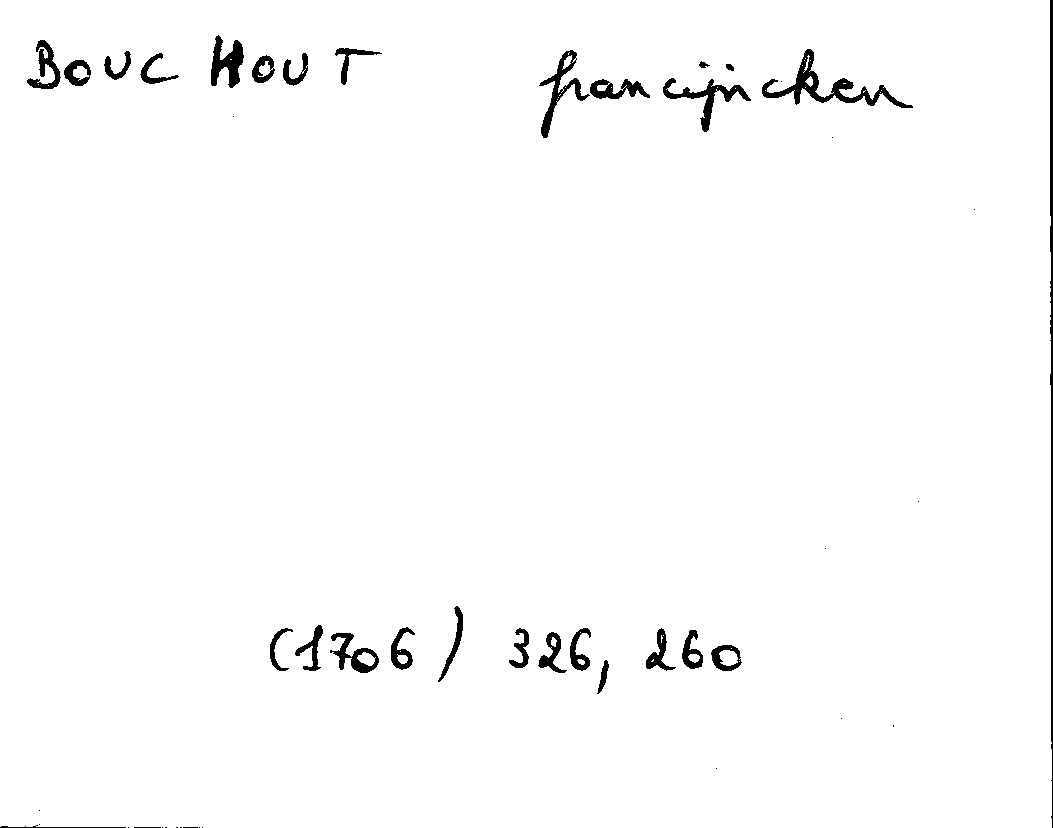 BOUCHOUT francijncken
(1706) 326, 260